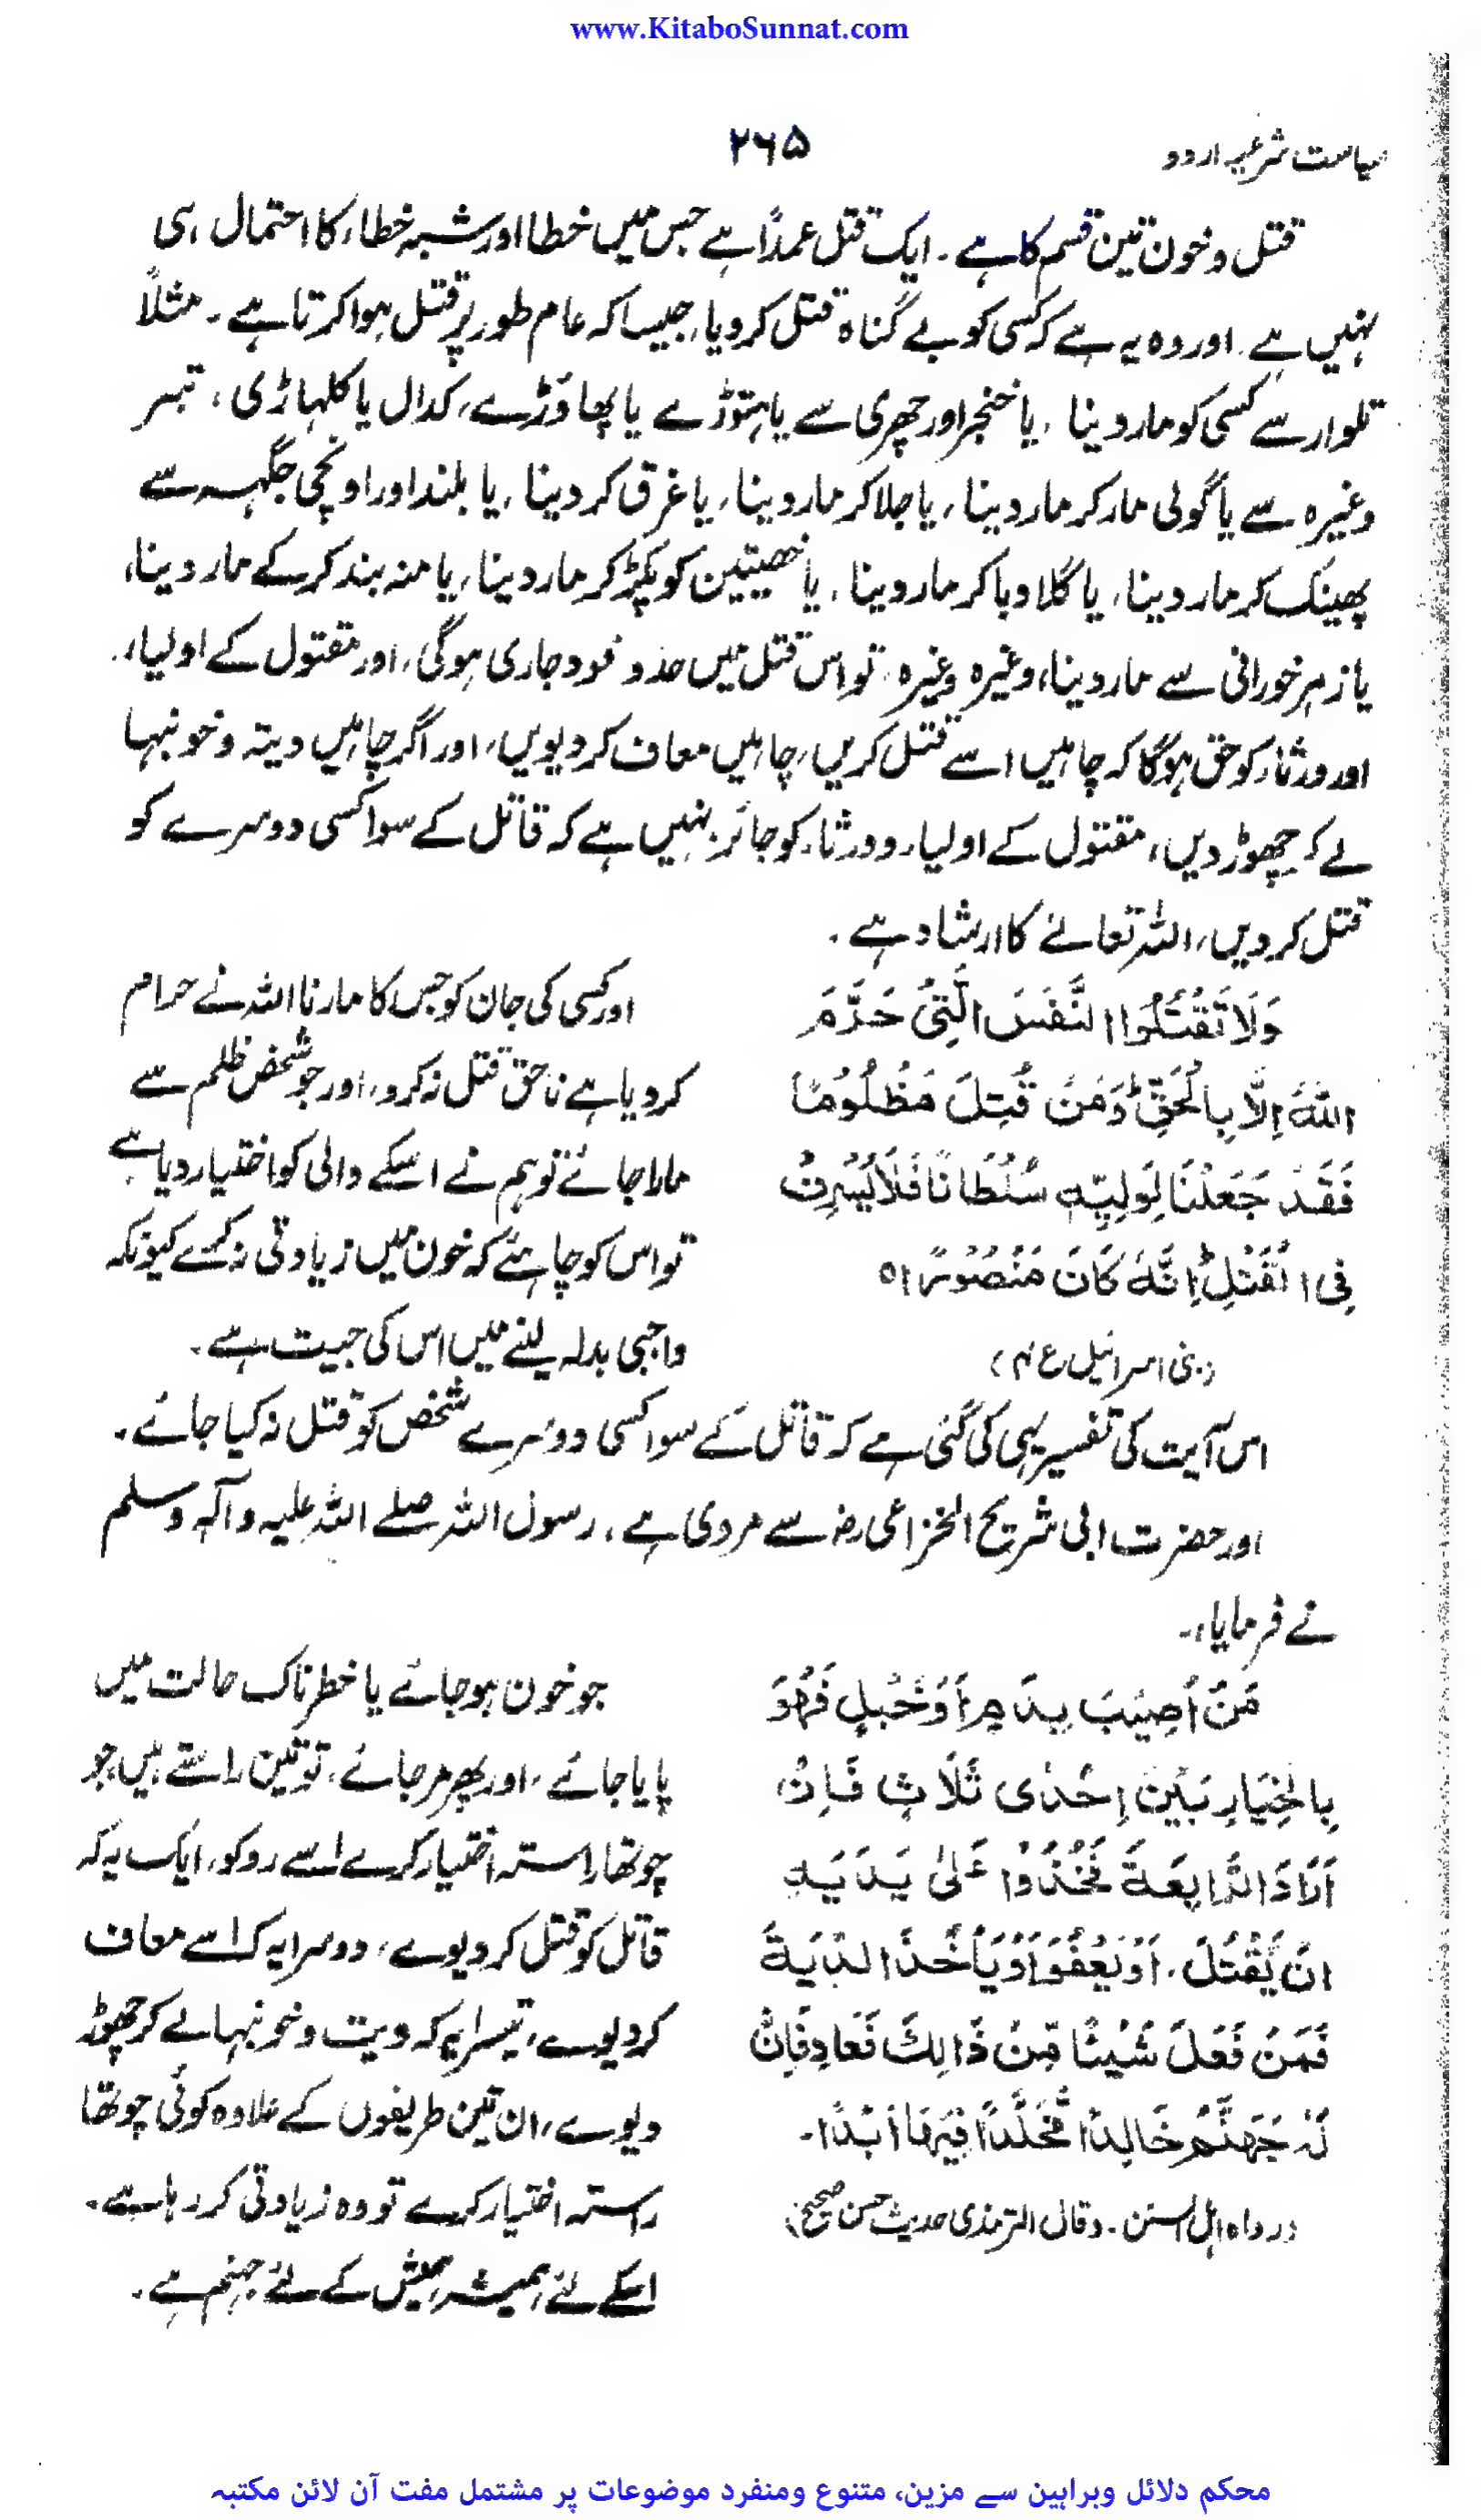 www.KitaboSunnat.com
سیاست شرعیہ اردو
۲۶۵
قتل و خون تین قسم کا ہے ۔ ایک قتل عمداً ہے جس میں خطا اور شبہ خطاء کا احتمال ہی
نہیں ہے، اور وہ یہ ہے کہ کسی کو بے گناہ قتل کردیا، جیسا کہ عام طور پر قتل ہوا کرتا ہے ۔ مثلاً
تلوار سے کسی کو مار دینا ، یا خنجر اور چھری سے یا ہتوڑے یا پھاؤڑے، کدال یا کلہاڑی ، تبسر
وغیرہ سے یا گولی مار کر مار دینا ، یا جلا کر مار دینا، یا غرق کر دینا ، یا بلند اور اونچی جگہہ سے
پھینک کر مار دینا، یا گلا دبا کر مار دینا ، یا خصیتین کو پکڑ کر مار دینا، یا منہ بند کرکے مار دینا،
یا زہر خورانی سے مار دینا، وغیرہ وغیرہ ۔ تو اس قتل میں حد و قود جاری ہوگی، اور مقتول کے اولیاء
اور ورثاء کو حق ہوگا کہ چاہیں اسے قتل کریں، چاہیں معاف کر دیویں، اور اگر چاہیں دیتہ و خونبہا
لے کر چھوڑ دیں، مقتول کے اولیاء و ورثاء کو جائز نہیں ہے کہ قاتل کے سوا کسی دوسرے کو
قتل کر دیں، اللہ تعالےٰ کا ارشاد ہے ۔
وَلَا تَقْتُلُوا النَّفْسَ الَّتِیْ حَرَّمَ
اللہُ اِلَّا بِالْحَقِّ وَمَنْ قُتِلَ مَظْلُوْمًا
فَقَدْ جَعَلْنَا لِوَلِیِّہٖ سُلْطَانًا فَلَا یُسْرِفْ
فِی الْقَتْلِ اِنَّہٗ کَانَ مَنْصُوْرًا ٥
(بنی اسرائیل ع ۴)
اور کسی کی جان کو جس کا مارنا اللہ نے حرام
کر دیا ہے ناحق قتل نہ کرو، اور جو شخص ظلم سے
مارا جائے تو ہم نے اسکے والی کو اختیار دیا ہے
تو اس کو چاہئے کہ خون میں زیادتی نہ کرے کیونکہ
واجبی بدلہ لینے میں اس کی جیت ہے ۔
اس آیت کی تفسیر یہی کی گئی ہے کہ قاتل کے سوا کسی دوسرے شخص کو قتل نہ کیا جائے ۔
اور حضرت ابی شریح الخزاعی رضؓ سے مروی ہے ، رسول اللہ صلے اللہ علیہ وآلہ وسلم
نے فرمایا ،۔
مَنْ اُصِیْبَ بِدَمٍ اَوْ خَبْلٍ فَھُوَ
بِالْخِیَارِ بَیْنَ اِحْدٰی ثَلَاثٍ فَاِنْ
اَرَادَ الرَّابِعَۃَ فَخُذُوْا عَلٰی یَدَیْہِ
اَنْ یَّقْتُلَ ، اَوْ یَعْفُوَ اَوْ یَاْخُذَ الدِّیَۃَ
فَمَنْ فَعَلَ شَیْئًا مِّنْ ذَالِکَ فَعَادَ فَاِنَّ
لَہٗ جَھَنَّمَ خَالِدًا مُّخَلَّدًا فِیْھَا اَبَدًا ۔
(رواہ اہل السنن ۔ وقال الترمذی حدیث حسن صحیح)
جو خون ہو جائے یا خطرناک حالت میں
پایا جائے ، اور پھر مر جائے ، تو تین راستے ہیں جو
چوتھا راستہ اختیار کرے اسے روکو، ایک یہ کہ
قاتل کو قتل کر دیوے، دوسرا یہ کہ اسے معاف
کر دیوے، تیسرا یہ کہ دیت و خونبہا لے کر چھوڑ
دیوے، ان تین طریقوں کے علاوہ کوئی چوتھا
راستہ اختیار کرے تو وہ زیادتی کر رہا ہے ۔
اسکے لئے ہمیشہ ہمیش کے لئے جہنم ہے ۔
محکم دلائل وبراہین سے مزین، متنوع ومنفرد موضوعات پر مشتمل مفت آن لائن مکتبہ